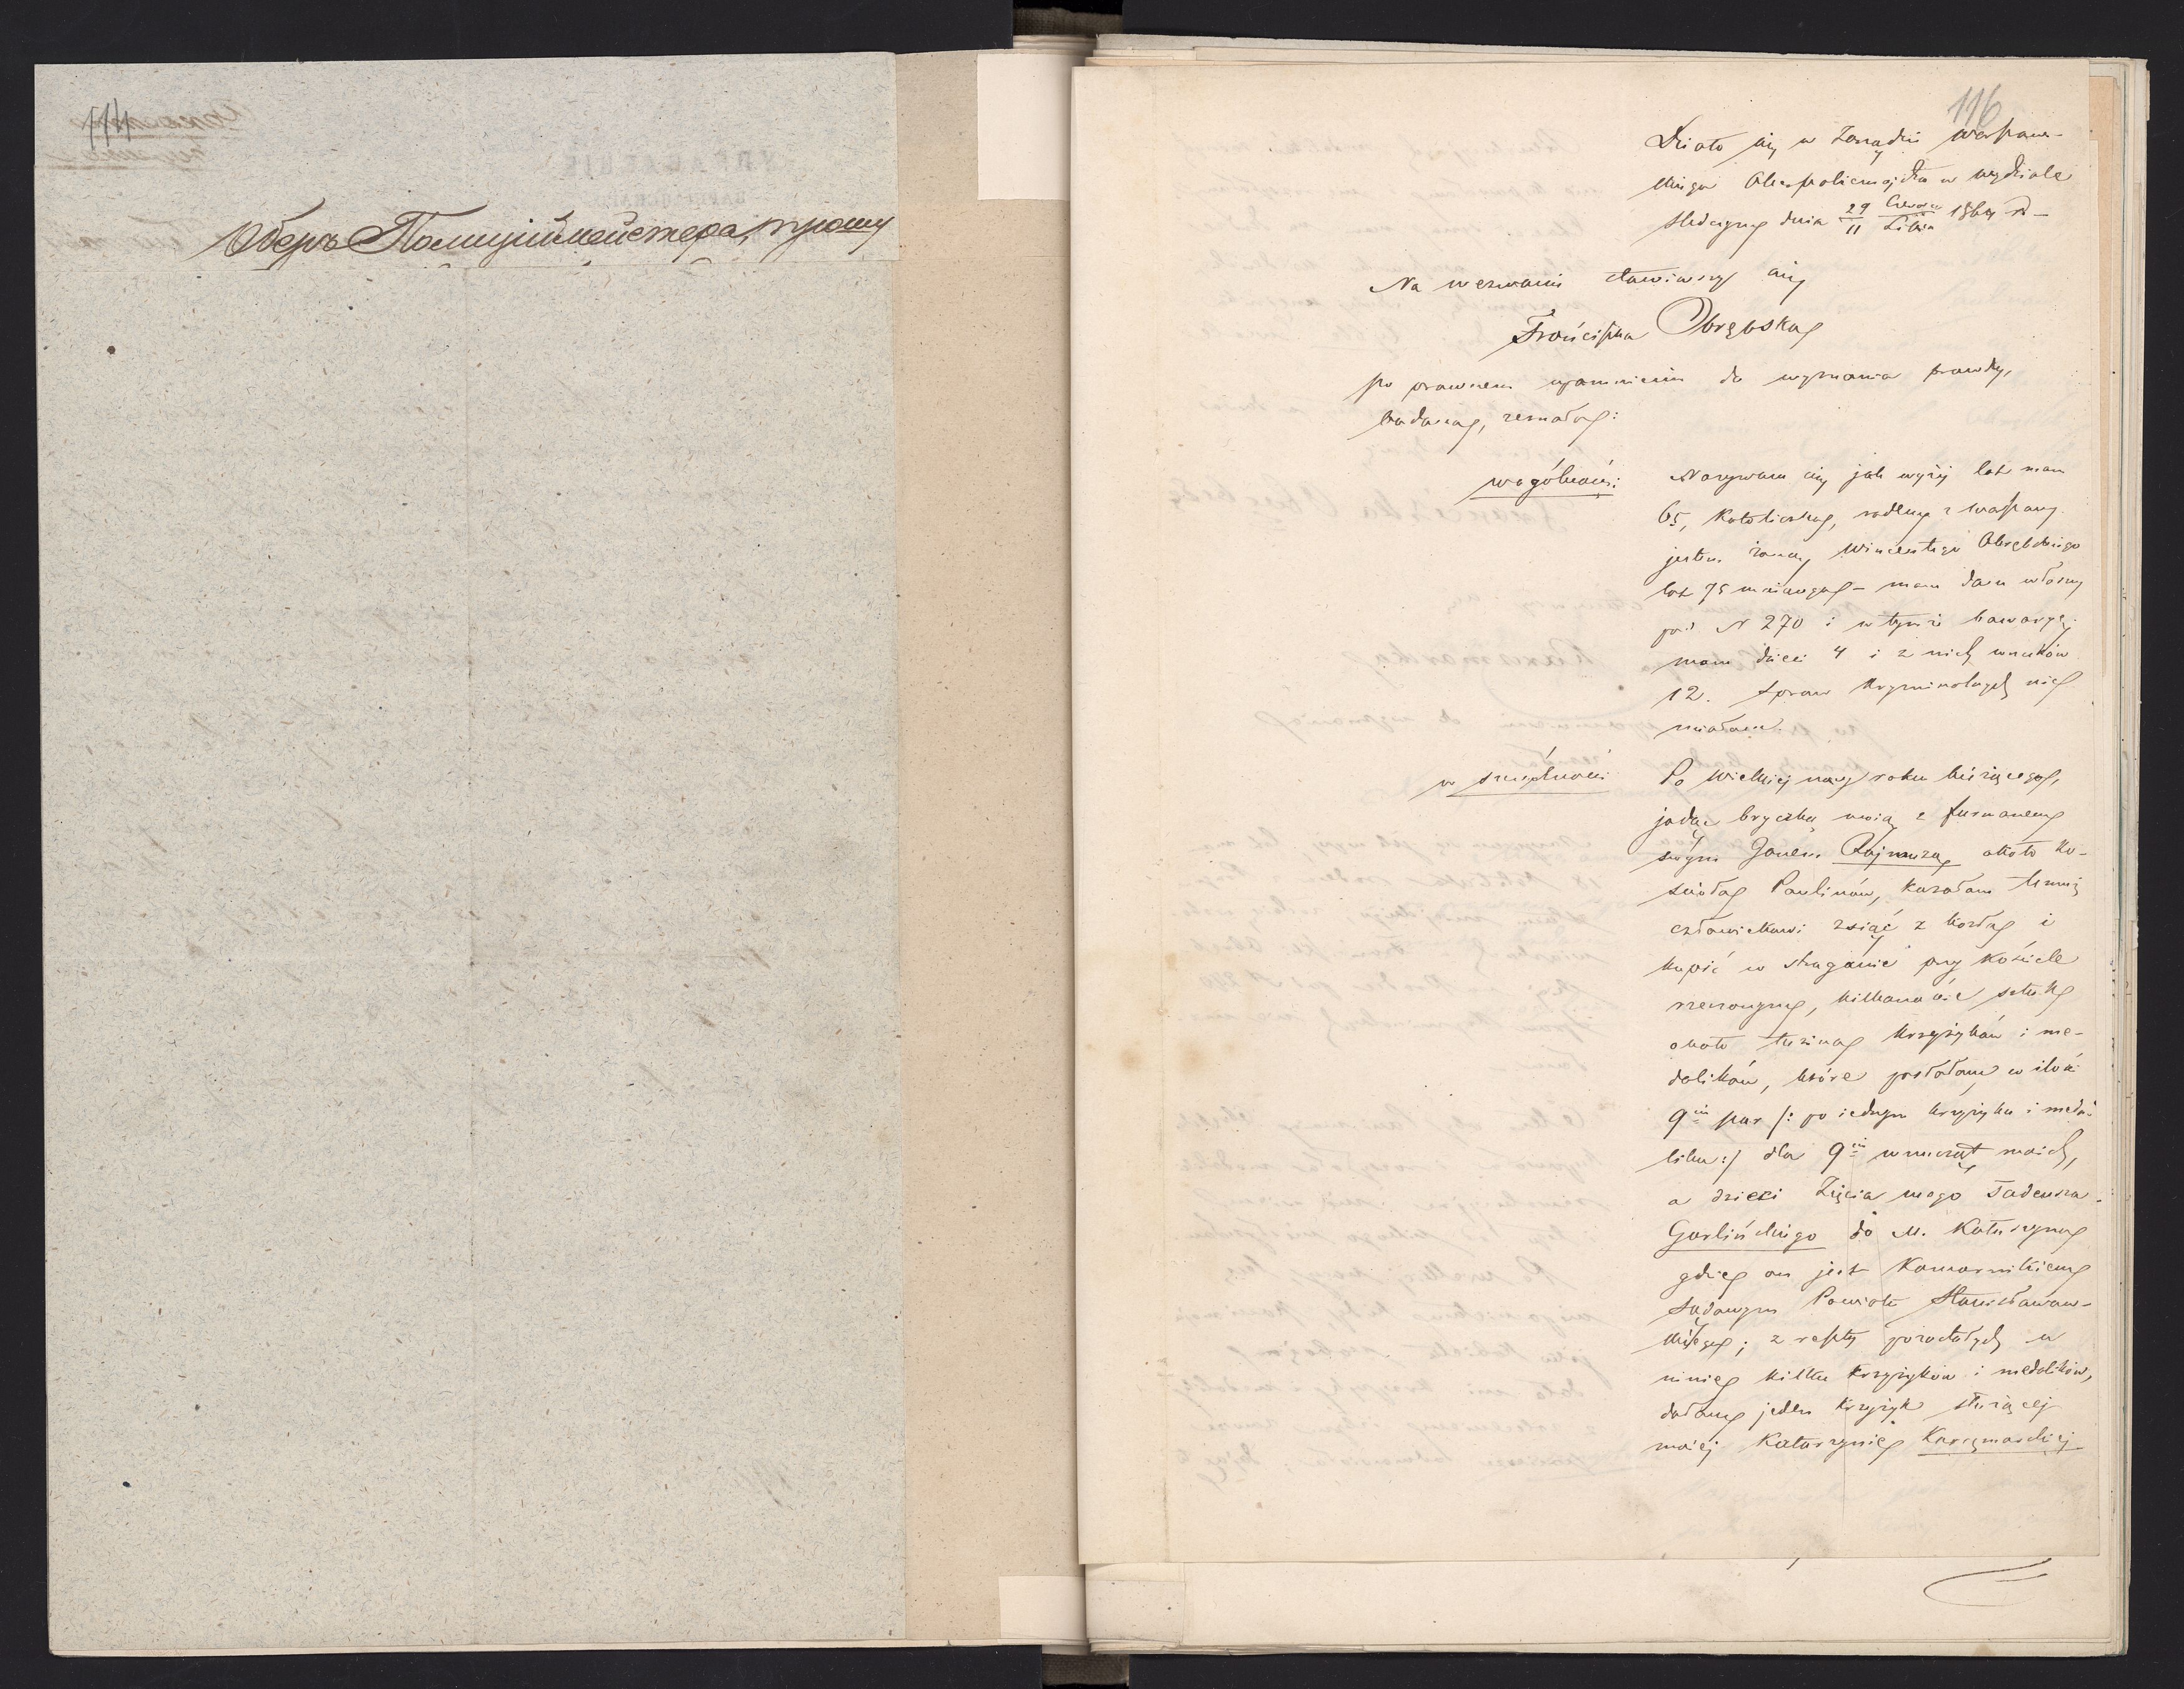 Оберъ Полиціймейстера, прошу
116
Działo się w Zarządzie Warszaw-
skiego Oberpolicmajstra w wydziale
śledczym dnia 29/11 Czerwca/Lipca 1864 r.
Na wezwanie stawiwszy się
Franciszka Obrębska
po prawnem upomnieniu do wyznania prawdy,
badana, zeznała:
w ogólności: Nazywam się jak wyżej lat mam
65, katoliczka, rodem z Warszawy
jestem żoną Wincentego Obrębskiego
lat 75 mającego - mam dom własny
pod N 270 i w tymże bawaryę,
mam dzieci 4 i z nich wnuków
12. spraw kryminalnych nie
miałam.
w szczególności Po Wielkiej nocy roku bieżącego,
jadąc bryczką moią z furmanem
swym Janem Rajmuzą około ko-
scioła Paulinów, kazałam temuż
człowiekowi zsiąść z kozła i
kupić w straganie przy kościele
rzeczonym, kilkanaście sztuk
około tuzina krzyżyków i me-
dalików, które posłałam w ilości
9ciu par /: po jednym krzyżyku i meda-
liku :/ dla 9ciu wnucząt moich,
a dzieci Zięcia mego Tadeusza
Garlińskiego do M. Kałuszyna
gdzie on jest Komornikiem
Sądowym Powiatu Stanisławow-
skiego; z reszty pozostałych u
mnie kilku krzyżyków i medalików,
dałam jeden krzyżyk służącej
mojej Katarzynie Karczmarskiej